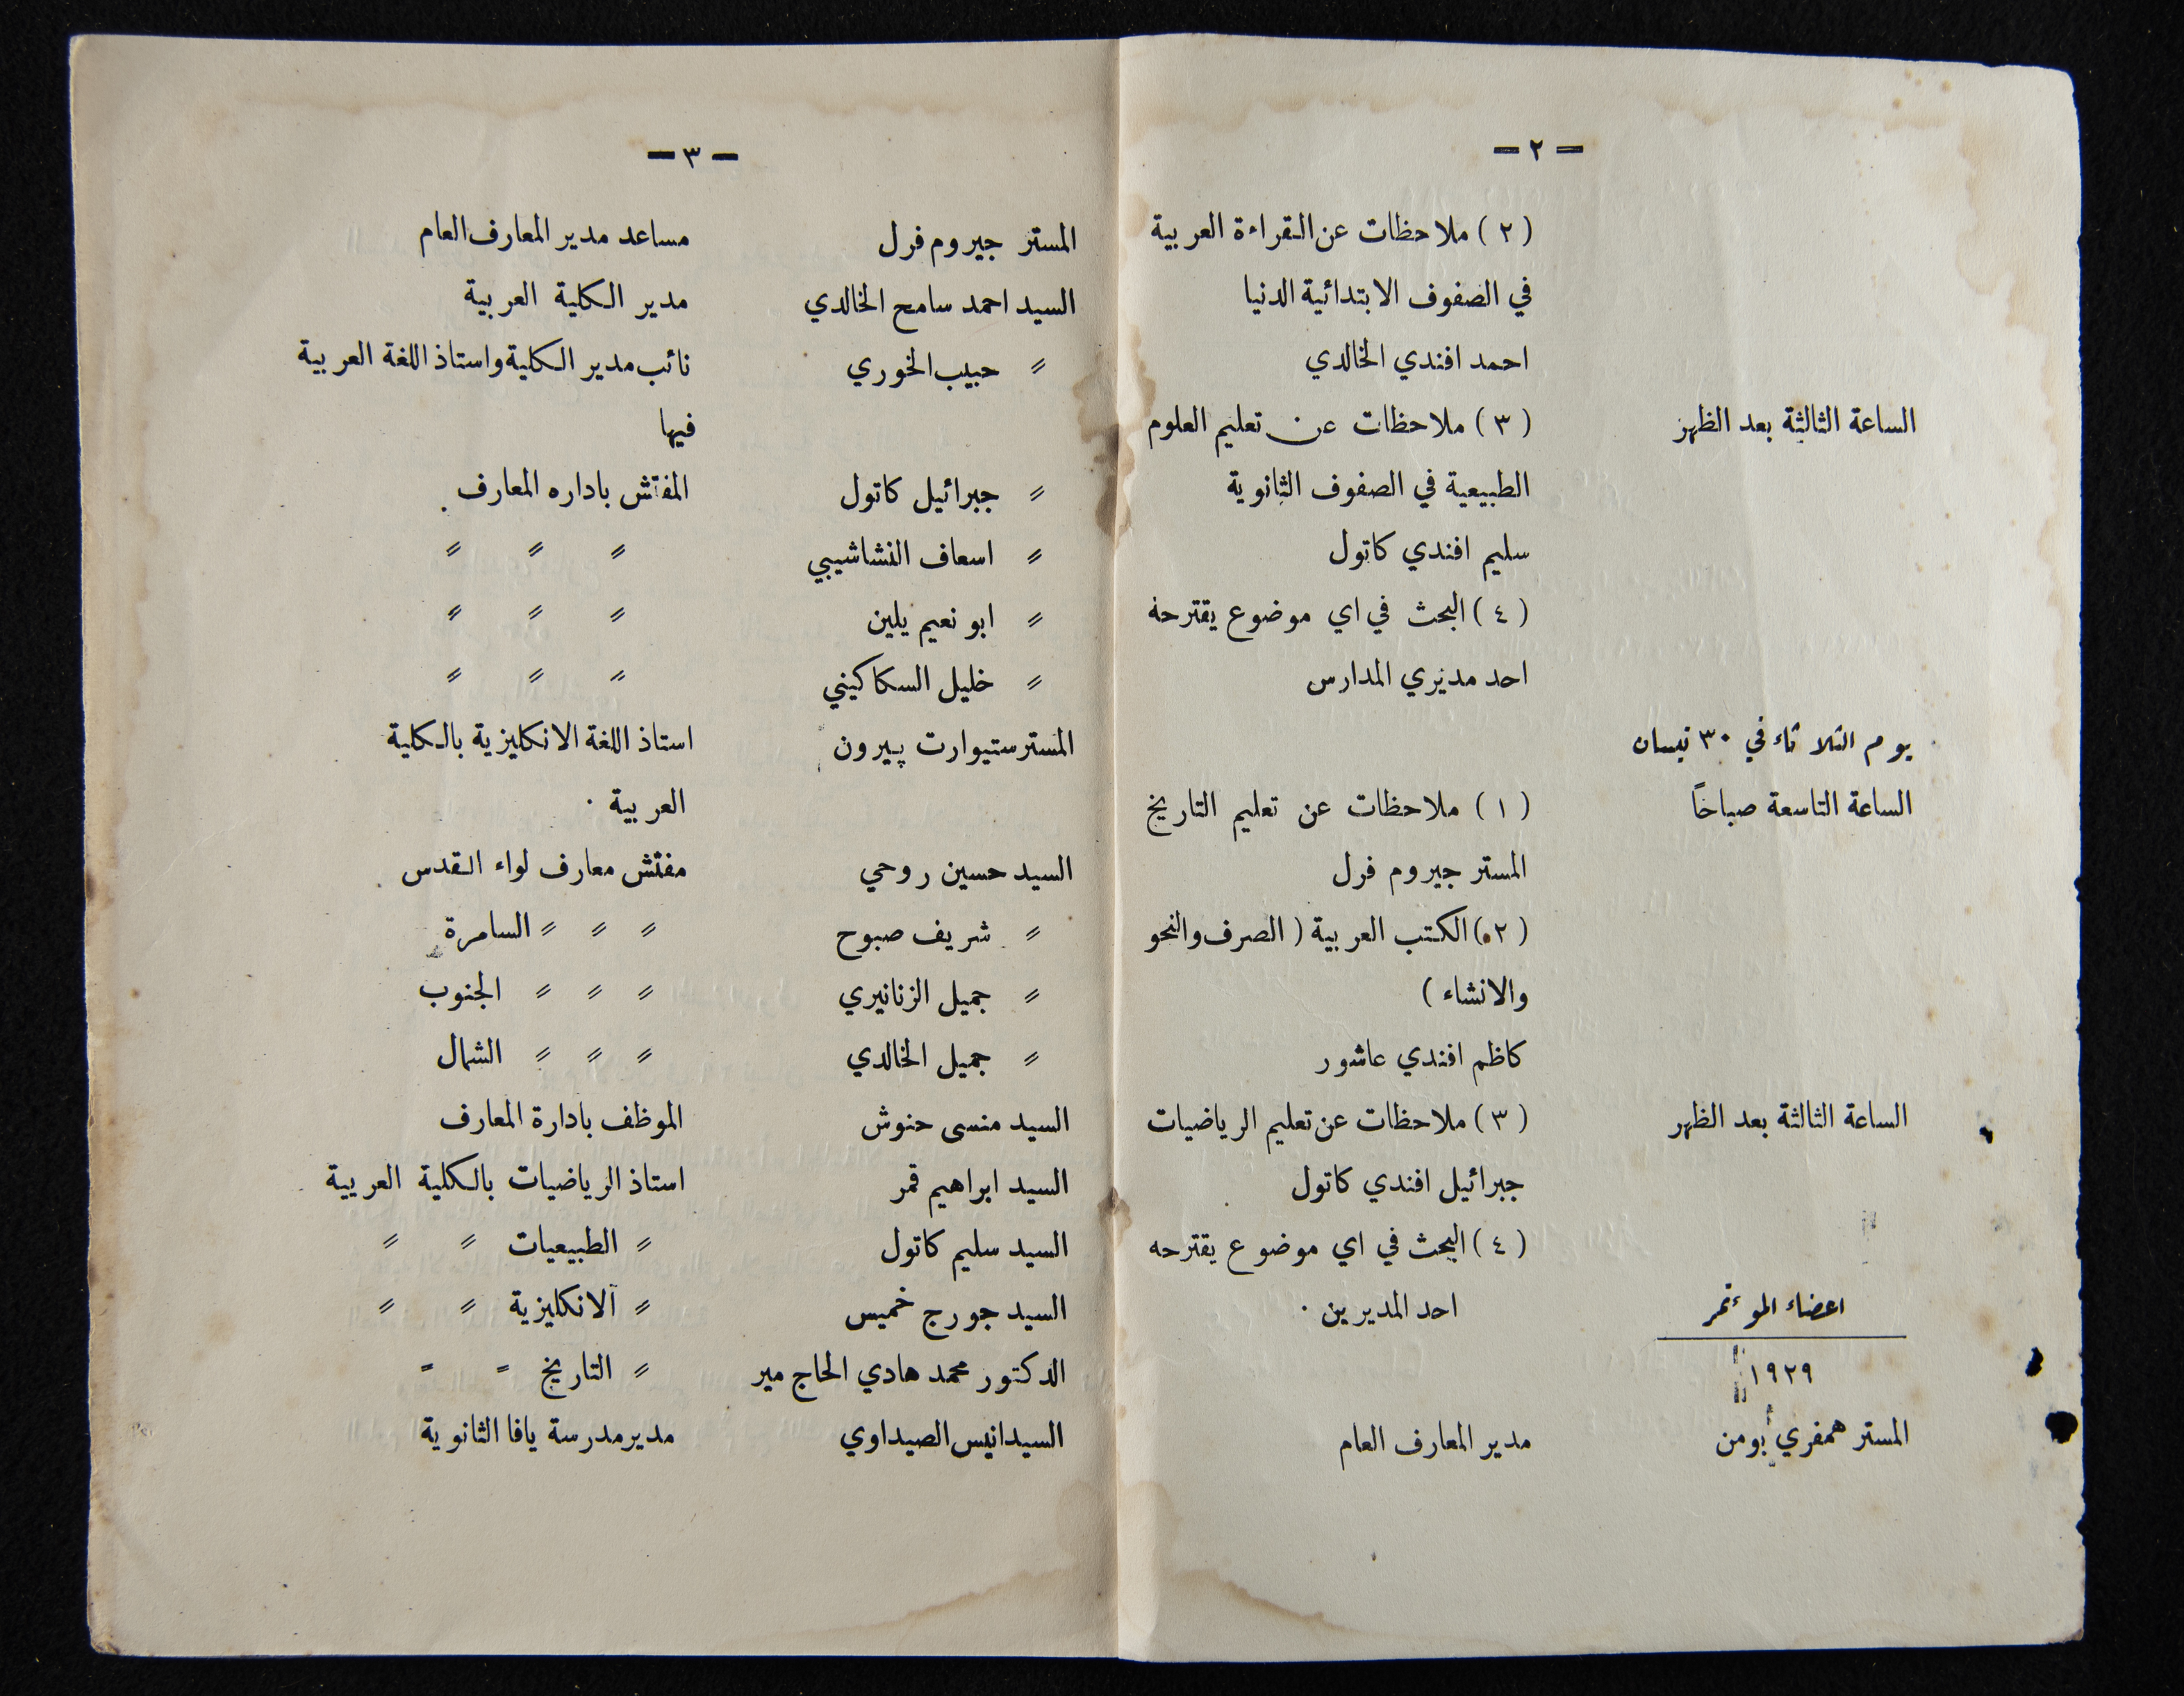 — ٢ —
( ٢ ) ملاحظات عن القراءة العربية
في الصفوف الابتدائية الدنيا
احمد افندي الخالدي
الساعة الثالثة بعد الظهر ( ٣ ) ملاحظات عن تعليم العلوم
الطبيعية في الصفوف الثانوية
سليم افندي كاتول
( ٤ ) البحث في اي موضوع يقترحه
احد مديري المدارس
يوم الثلاثاء في ٣٠ نيسان
الساعة التاسعة صباحاً ( ١ ) ملاحظات عن تعليم التاريخ
المستر جيروم فرل
( ٢ ) الكتب العربية ( الصرف والنحو
والانشاء )
كاظم افندي عاشور
الساعة الثالثة بعد الظهر ( ٣ ) ملاحظات عن تعليم الرياضيات
جبرائيل افندي كاتول
( ٤ ) البحث في اي موضوع يقترحه
احد المديرين .
اعضاء الموءتمر
١٩٢٩
المستر همفري بومن مدير المعارف العام
— ٣ —
المستر جيروم فرل مساعد مدير المعارف العام
السيد احمد سامح الخالدي مدير الكلية العربية
〃 حبيب الخوري نائب مدير الكلية واستاذ اللغة العربية
فيها
〃 جبرائيل كاتول المفتش باداره المعارف .
〃 اسعاف النشاشيبي 〃 〃 〃
〃 ابو نعيم يلين 〃 〃 〃
〃 خليل السكاكيني 〃 〃 〃
المستر ستيوارت پيرون استاذ اللغة الانكليزية بالكلية
العربية .
السيد حسين روحي مفتش معارف لواء القدس
〃 شريف صبوح 〃 〃 〃 السامرة
〃 جميل الزنانيري 〃 〃 〃 الجنوب
〃 جميل الخالدي 〃 〃 〃 الشمال
السيد منسى حنوش الموظف بادارة المعارف
السيد ابراهيم قمر استاذ الرياضيات بالكلية العربية
السيد سليم كاتول 〃 الطبيعيات 〃 〃
السيد جورج خميس 〃 الانكليزية 〃 〃
الدكتور محمد هادي الحاج مير 〃 التاريخ 〃 〃
السيد انيس الصيداوي مدير مدرسة يافا الثانوية